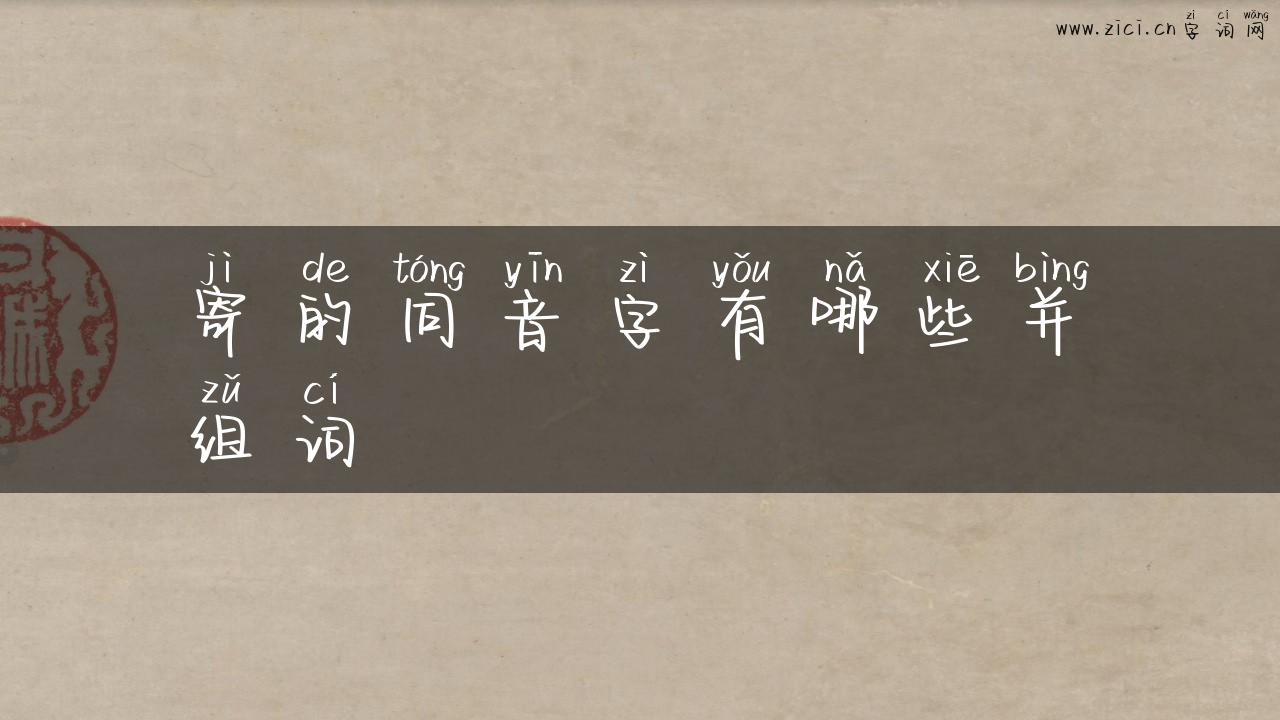 zì cí wǎng
www.zici.cn 字词网
jì de tóng yīn zì yǒu nǎ xiē bìng
寄的同音字有哪些并
zǔ cí
组词